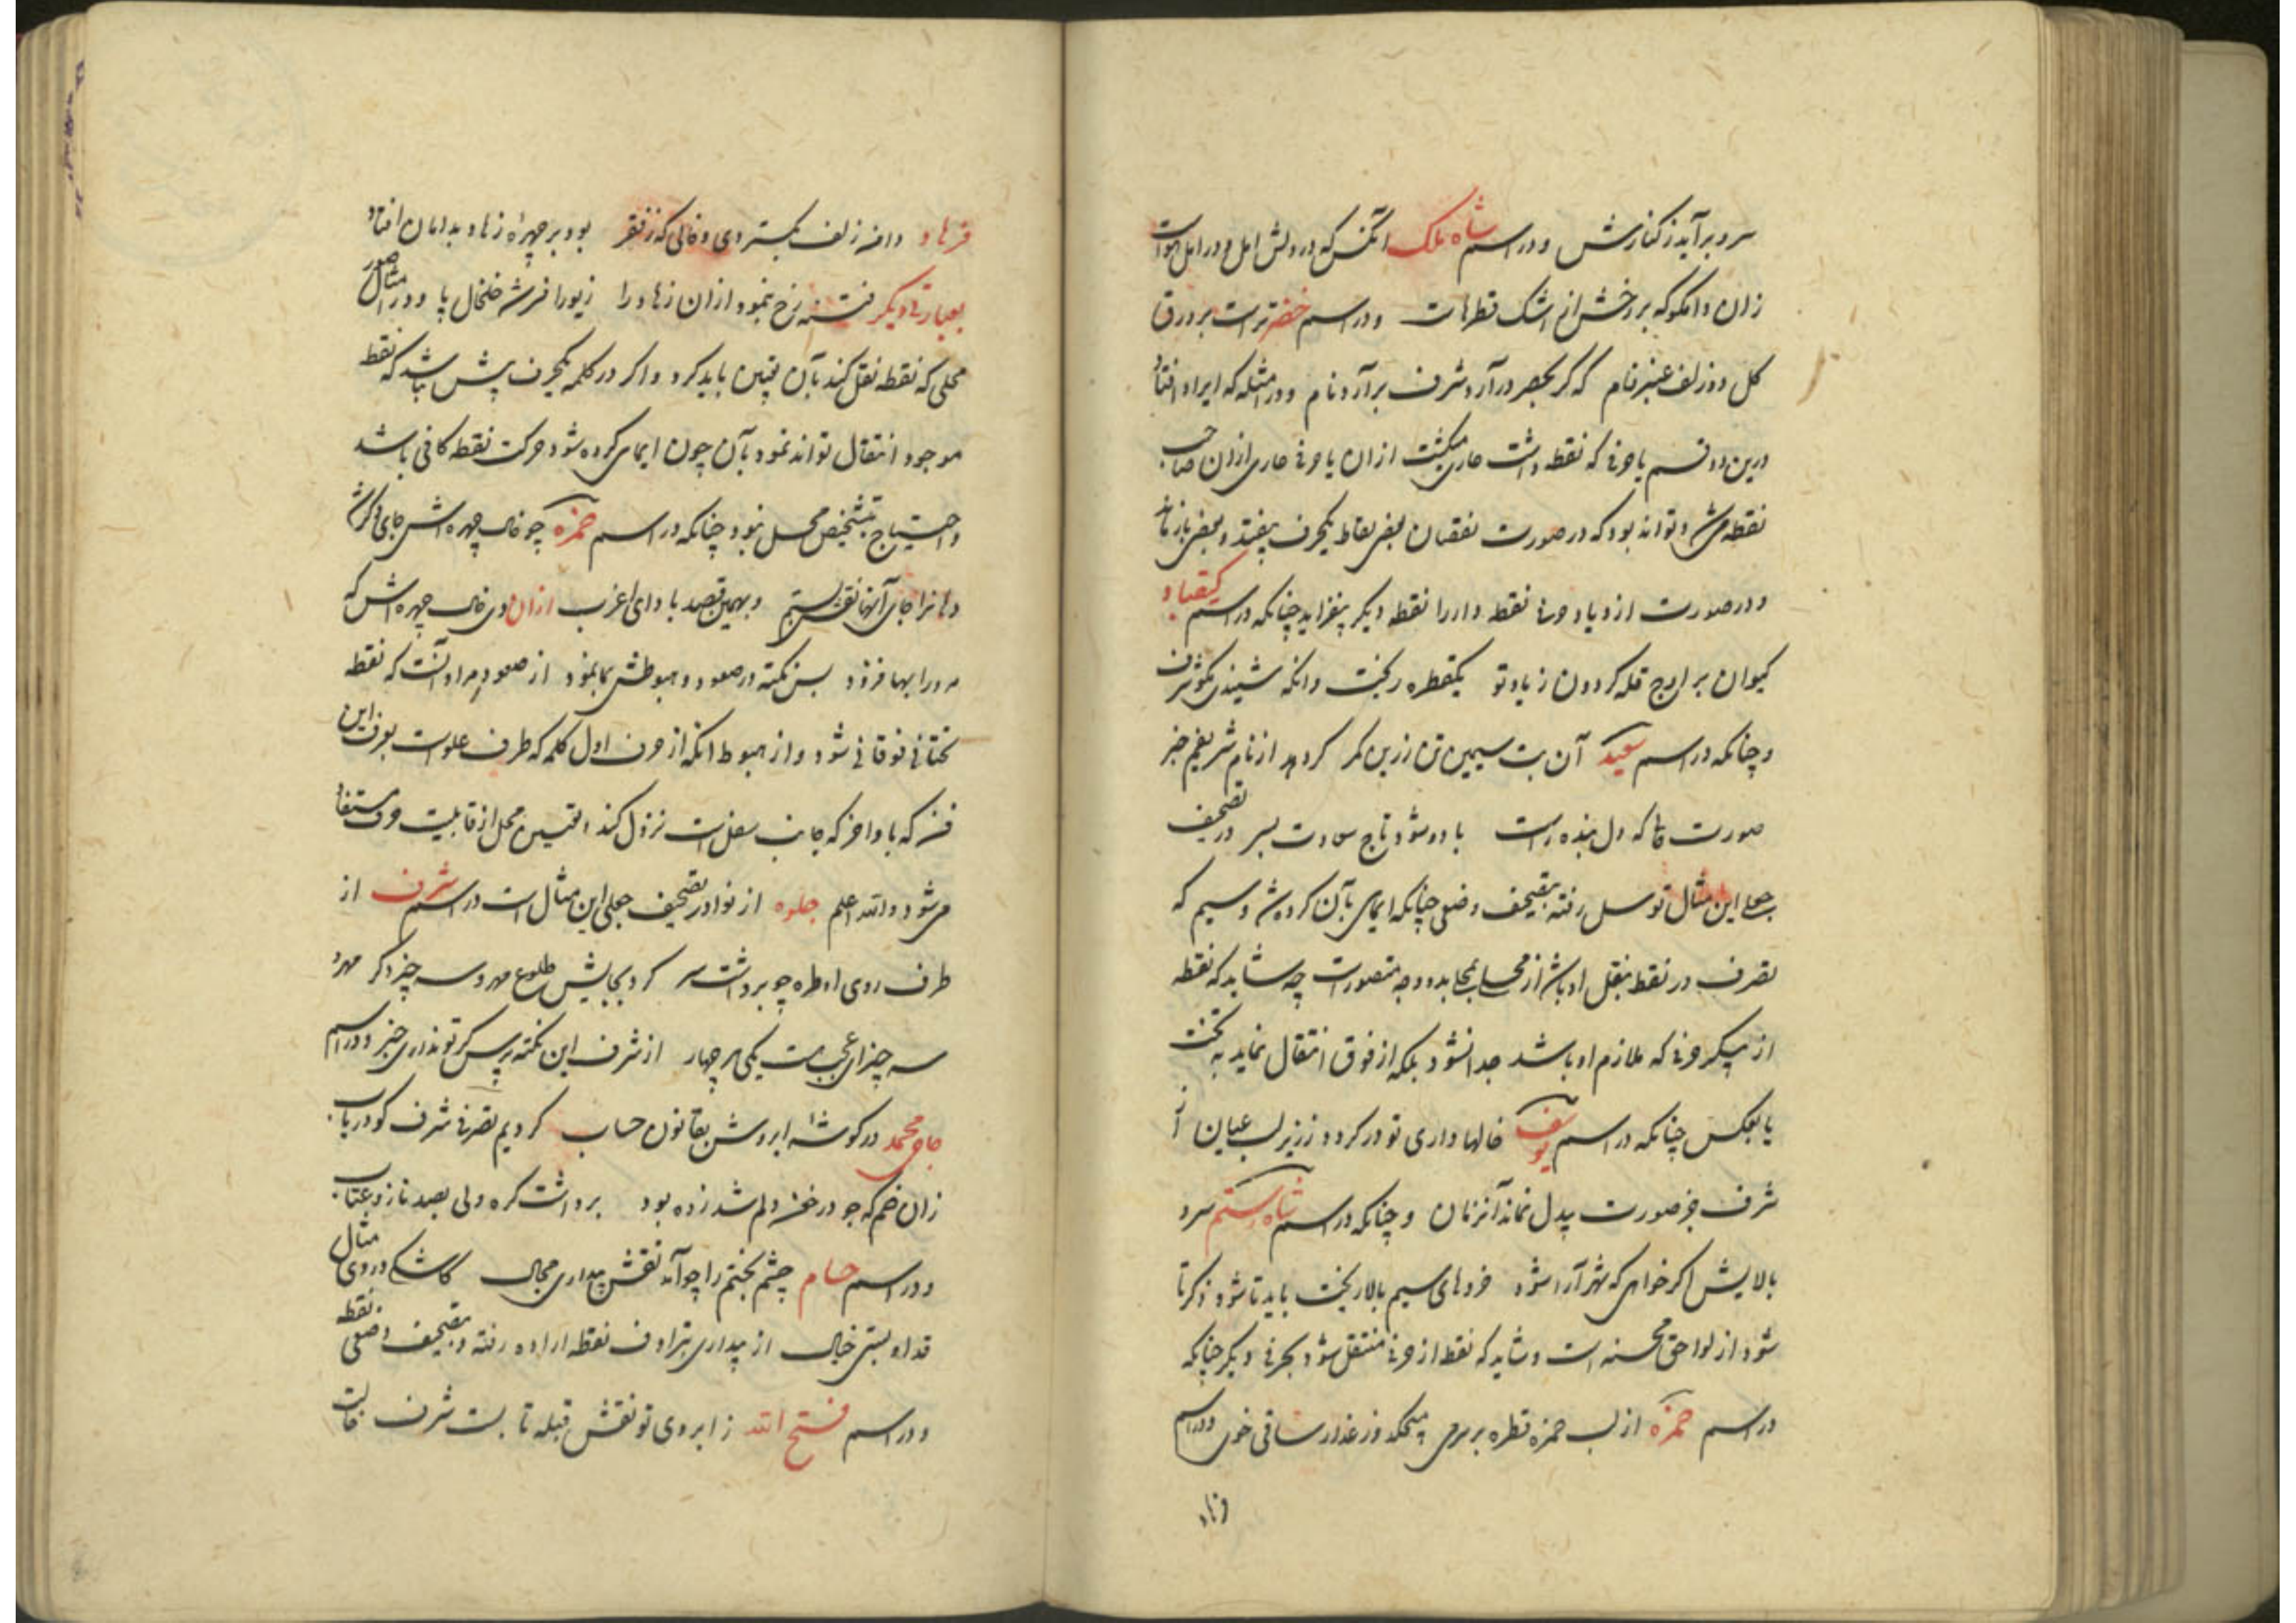 سرو برآید ز کنارش و در اسم شاه ملک آنکس که در دلش امل و در امل
زان دانکو که بر رخش از اشک قطرهاست و در اسم خضر تراست بر ورق
کل دو زلف عنبرفام که گر بحصر درآرد شرف برآرد نام و در امثله که ایراد افتاد
درین دو قسم یا حرفی که نقطه داشت عاری میکشت از ان یا حرفی عاری از ان صاحب
نقطه میشد و تواند بود که در صورت نقصان بعضی نقاط یکحرف بیفتد و بعضی باز ماند
و در صورت ازدیاد حرفی نقطه دار را نقطه دیگر بیفزاید چنانکه در اسم کیقباد
کیوان بر اوج قله کردون زیاد تو یکقطره ریخت وانکه شنیدی
و چنانکه در اسم سعید آن بت سیمین تن زرین کمر کرد از نام شریفم خبر
صورت که دل بنده است با دو شود تاج سعادت بسر در تصحیف
جعلی این مثال توسل رفته بتصحیف وضعی چنانکه ایمای بآن کرده شد وسیم که
تصرف در نقط بنقل او باشد از محلی بمحلی بدو وجه متصورست چه شاید که نقطه
از پیکر حرفی که ملازم او باشد جدا نشود بلکه از فوق انتقال نماید به تحت
یا بعکس چنانکه در اسم یوسف خالها داری تو در کرد و ز زیر لب عیان آن
شرف جز صورت بیدل نماند آنزمان و چنانکه در اسم شاه رستم سرو
بالایش اکر خواهی که شهرآرا شود خردهای سیم بالا ریخت باید تا شود ذکر تا
شود از لواحق محسنه است و شاید که نقط از حرفی منتقل شود بحرفی دیگر چنانکه
در اسم حمزه از لب حمزه قطره بر می میچکد وز عذار ساقی خوی و در اسم
فرهاد
فرهاد دامه زلف بکستردی و خالی که ز فقر بود بر چهره زهاد بدامان افتاد
بعبارتی دیگر فتنه رخ بنمود از ان زهاد را زیور افرشته خلخال پا و در امثال صور
محلی که نقطه نقل کند بآن تعیین باید کرد و اکر در کلمه یکحرف بیش نباشد که نقط
موجود انتقال تواند نمود بآن چون ایمای کرده شود حرکت نقطه کافی باشد
و احتیاج بتشخیص محل نبود چنانکه در اسم حمزه چو خال چهره اش جای دکر شد
دهانرا جای آنها نقش بستم و بهمین قصد با دای اغرب ازان وی خال چهره اش که
مه را بها فزود بس نکته در صعود و هبوطش بما نمود از صعود مراد آنست که نقطه
تحتانی فوقانی شود و از هبوط انکه از حرف اول کلمه که طرف علوست بعرف این
فن که با واخر که جانب سفل است نزول کند و تعیین محل از قابلیت حرف مستفاد
میشود و الله اعلم جلوه از نوادر تصحیف جعلی این مثال است در اسم شرف از
طرف روی او طره چو برداشت سر کرد بجایش طلوع مهر و سه چیز دکر مهر و
سه چیز ای عجب هست یکی هر چهار از شرف این نکته پرس گر تو نداری خبر و در اسم
حاجی محمد در کوشه ابروش بقانون حساب کردیم تصرفی شرف کو دریاب
زان خم که جو در خرمن دلم شد زده بود برداشت کره ولی بصد ناز و عتاب
و در اسم حسام چشم بختم را چو آمد نقش بیداری محال کاشکی در وی مثال
قد او بستی خیال از بیداری بترادف نقطه اراده رفته و بتصحیف وضعی نقطه
و در اسم فتح الله ز ابروی تو نقش قبله تا بست شرف